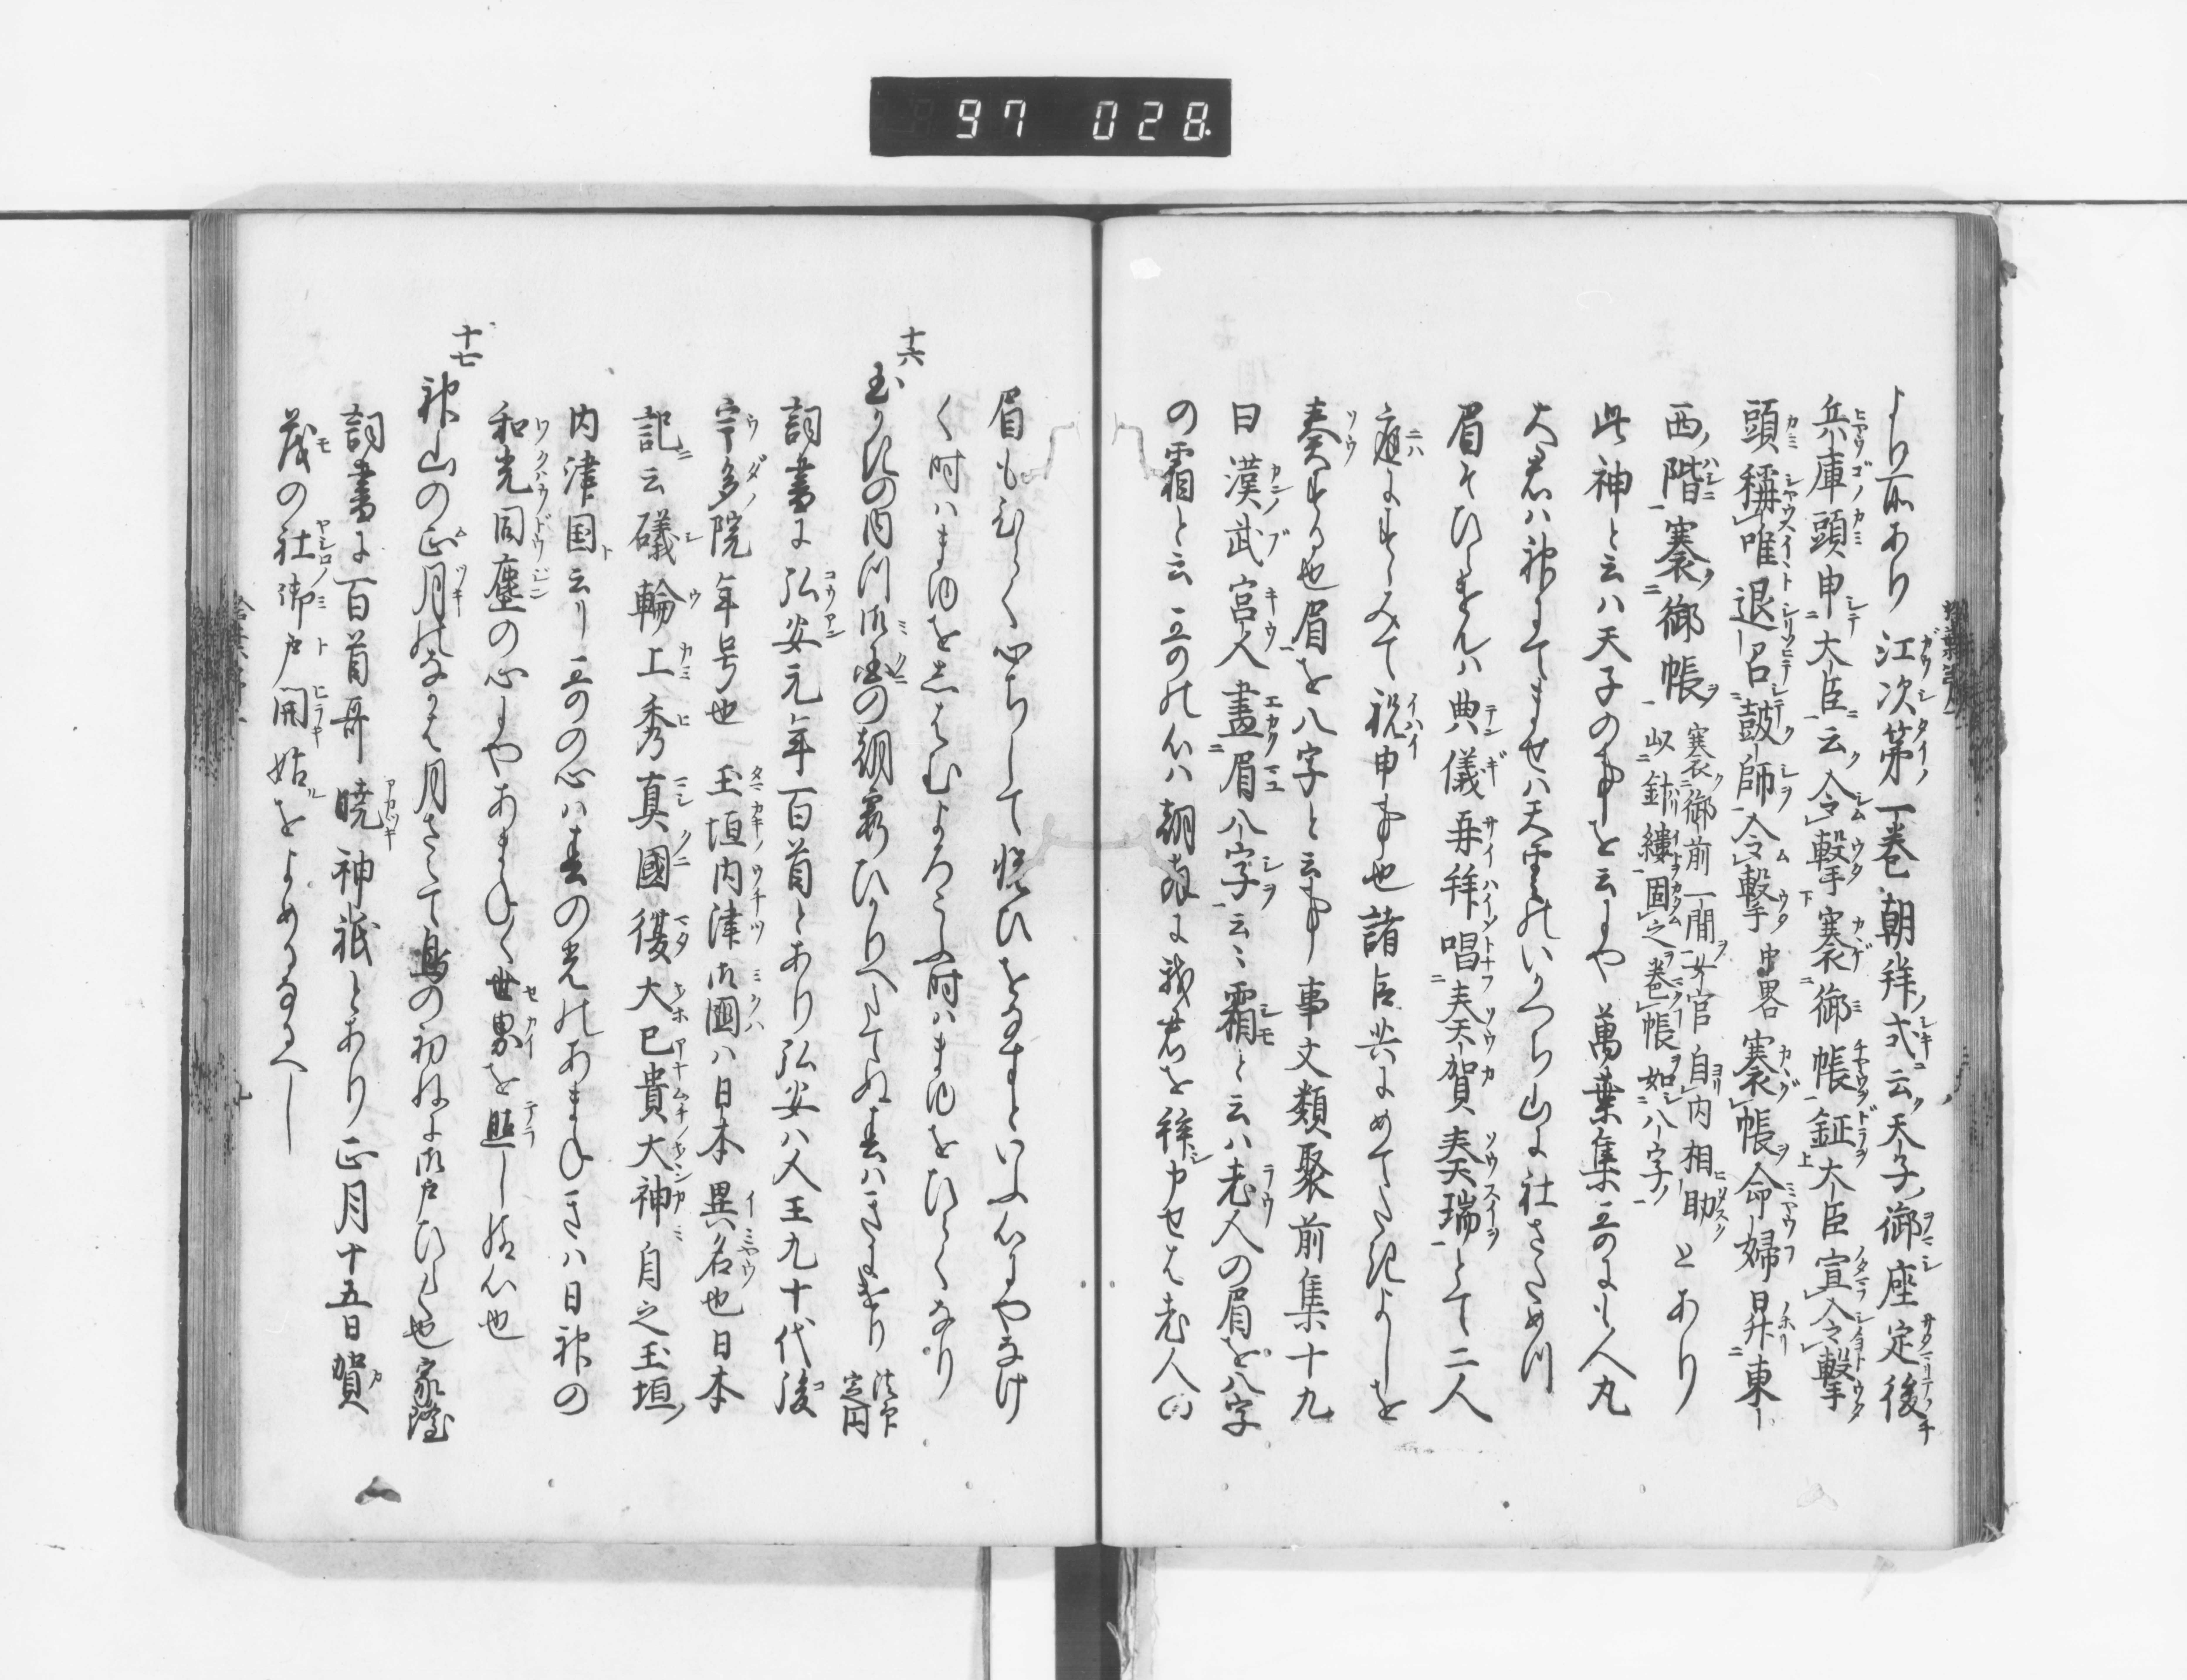 97 028
より前あり江次第一巻朝拝式云天子御座定後
兵庫頭申大臣云令撃褰御帳鉦大臣宣令撃
頭称唯退召鼓師令撃中畧褰帳命婦昇東
西階褰御帳褰御前一間女官自内相助以針縷固之巻帳如八字とあり
此神と云ハ天子の事を云にや萬葉集三のにも人丸
大君ハ神にてませハ天雲のいかつち山に社さため川
眉をひらすんハ典儀再拝唱奏賀奏瑞とて二人
庭にすゝみて祝申事也諸臣共にめてたきよしを
奏する也眉を八字と云事事文類聚前集十九
曰漢武宮人畫眉八字云々霜と云ハ老人の眉を八字
の霜と云哥の心ハ朝廷に我君を拝申せは老人の
眉もひらく心ちして悦ひをなすといふ心にやなけ
く時ハまゆをしはむよろこふ時ハまゆをひらくなり
十六
玉かきの内津御国の朝霞ひかりへたてぬ春ハきにけり 法印定円
詞書に弘安元年百首とあり弘安ハ人王九十代後
宇多院年号也玉垣内津御國ハ日本異名也日本
記云磯輪上秀真國復大己貴大神自之玉垣
内津国云リ哥の心ハ春の光のあまねきハ日神の
和光同塵の心にやあまねく世界を照し給心也
十七
神山の正月のなかは月さえて鳥の初ねに御戸ひらく也 家隆
詞書に百首哥暁神祇とあり正月十五日賀
茂の社御戸開始をよめるなるへし